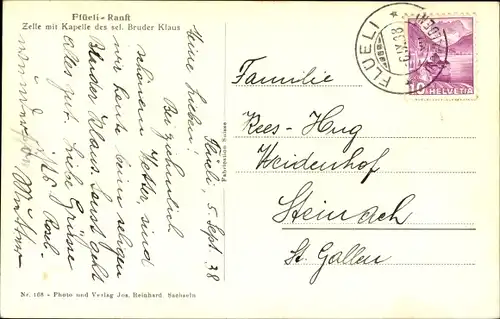 Flüeli-Ranft
Zelle mit Kapelle des sel. Bruder Klaus
Flüeli, 5. Sept. 38
Meine Lieben!
Bei herrlich
schönem Wetter, sind
wir heute beim seligen
Bruder Klaus. Sonst geht
alles gut. Liebe Grüsse
Mutter
Nr. 168 - Photo und Verlag Jos. Reinhard Sachseln
Fabrication Suisse
FLÜELI
HELVETIA
10
Familie
Kees-Hug
Weidenhof
Steinach
St. Gallen